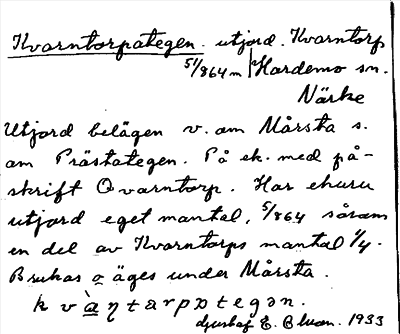 Kvarntorpategen. utjord. Kvarntorp
5/864 m Hardemo sn.
Närke
Utjord belägen v. om Mårsta s.
om Prästategen. På ek. med på-
skrift Qvarntorp. Har ehuru
utjord eget mantal, 5/864 såsom
en del av Kvarntorps mantal 1/4.
Brukas o äges under Mårsta.
E. 1933